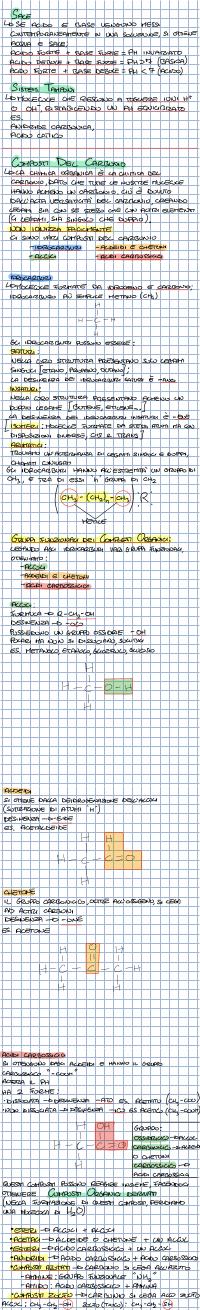 SALE
SE ACIDO E BASE VENGONO MESSI
CONTEMPORANEAMENTE IN UNA SOLUZIONE, SI OTTIENE
ACQUA E SALE:
ACIDO FORTE + BASE FORTE = PH INVARIATO
ACIDO DEBOLE + BASE FORTE = PH>7 (BASICA)
ACIDO FORTE + BASE DEBOLE = PH<7 (ACIDO)
SISTEMI TAMPONE
MOLECOLE CHE RIESCONO A TOGLIERE IONI H+
O OH-, RISTABILENDO UN PH EQUILIBRATO
ES.
ANIDRIDE CARBONICA,
ACIDO
COMPOSTI DEL CARBONIO
LA CHIMICA ORGANICA È LA CHIMICA DEL
CARBONIO, DATO CHE TUTTE LE NOSTRE MOLECOLE
HANNO ALMENO UN CARBONIO, CIÒ È DOVUTO
DALL'ALTA VERSATILITÀ DEL CARBONIO, CREANDO
LEGAMI SIA CON SE STESSO CHE CON ALTRI ELEMENTI
(4 LEGAMI, SIA SINGOLI CHE DOPPI).
NON IONIZZA FACILMENTE
CI SONO VARI COMPOSTI DEL CARBONIO
-IDROCARBURI -ALDEIDI E CHETONI
-ALCOLI -ACIDI CARBOSSILICI
IDROCARBURI
MOLECOLE FORMATE DA IDROGENO E CARBONIO,
IDROCARBURO PIÙ SEMPLICE METANO (CH4)
H
H-C-H
H
GLI IDROCARBURI POSSONO ESSERE:
SATURI:
NELLA LORO STRUTTURA PRESENTANO SOLO LEGAMI
SINGOLI [ETANO, PROPANO, BUTANO];
LA DESINENZA DEI IDROCARBURI SATURI È -ANO
INSATURI:
NELLA LORO STRUTTURA PRESENTANO ALMENO UN
DOPPIO LEGAME [BUTENE, ETILENE...]
LA DESINENZA DEI IDROCARBURI INSATURI È -ENE
[ISOMERI: MOLECOLE FORMATE DA STESSI ATOMI MA CON
DISPOSIZIONI DIVERSE, CIS E TRANS]
AROMATICI:
TROVIAMO UN'ALTERNANZA DI LEGAMI SINGOLI E DOPPI,
CHIAMATI CONIUGATI
GLI IDROCARBURI HANNO ALL'ESTREMITÀ UN GRUPPO DI
CH3, E TRA DI ESSI n GRUPPI DI CH2
(CH3-(CH2)n-CH3) R
GRUPPI FUNZIONALI DEI COMPOSTI ORGANICI:
LEGANDO AGLI IDROCARBURI VARI GRUPPI FUNZIONALI,
OTTENIAMO:
-ALCOLI
-ALDEIDI E CHETONI
-ACIDI CARBOSSILICI
ALCOLI:
FORMULA → R-CH2-OH
DESINENZA → -OLO
POSSIEDONO UN GRUPPO OSSIDRILE -OH
POLARI MA NON SI DISSOCIANO, SOLUBILI
ES. METANOLO, ETANOLO, GLICEROLO, GLUCOSIO
H
H-C-O-H
H
ALDEIDI
SI OTTIENE DALLA DEIDROGENAZIONE DELL'ALCOLI
(SOTTRAZIONE DI ATOMI H+)
DESINENZA → -EIDE
ES. ACETALDEIDE
H H
H-C-C=O
H
CHETONE
IL GRUPPO CARBONILICO, OLTRE ALL'OSSIGENO, SI LEGA
AD ALTRI CARBONI
DESINENZA → -ONE
ES ACETONE
H O H
H-C-C-C-H
H H
ACIDI CARBOSSILICI
SI OTTENGONO DAGLI ALDEIDI E HANNO IL GRUPPO
CARBOSSILICO "-COOH"
IL PH
HA 2 FORME:
-DISSOCIATA → DESINENZA -ATO ES ACETATO (CH3-COO-)
-NON DISSOCIATA → DESINENZA -ICO ES ACETICO (CH3-COOH)
H OH
H-C-C=O
H
GRUPPO:
OSSIDRILICO → ALCOLI
CARBONILICO → ALDEIDI
O CHETONI
CARBOSSILICO →
ACIDI CARBOSSILICI
QUESTI COMPOSTI POSSONO REAGIRE INSIEME, FACENDOCI
OTTENERE COMPOSTI ORGANICI DERIVATI
(NELLA FORMAZIONE DI QUESTI COMPOSTI, PERDIAMO
UNA MOLECOLA DI H2O)
•ETERI → ALCOLI + ALCOLI
•ACETALI → ALDEIDE O CHETONE + UN ALCOLI
•ESTERI → ACIDO CARBOSSILICO + UN ALCOLI
•ANIDRIDI → ACIDO CARBOSSILICO + ACIDO CARBOSSILICO
•COMPOSTI AZOTATI → CARBONIO SI LEGA ALL'AZOTO
-AMMINE: GRUPPO FUNZIONALE "NH2"
-AMMIDI: ACIDO CARBOSSILICO + AMMINA
•COMPOSTI ZOLFO → CARBONIO SI LEGA ALLO ZOLFO
ALCOL: CH3-CH2-OH ZOLFO (TIOLO): CH3-CH2-SH